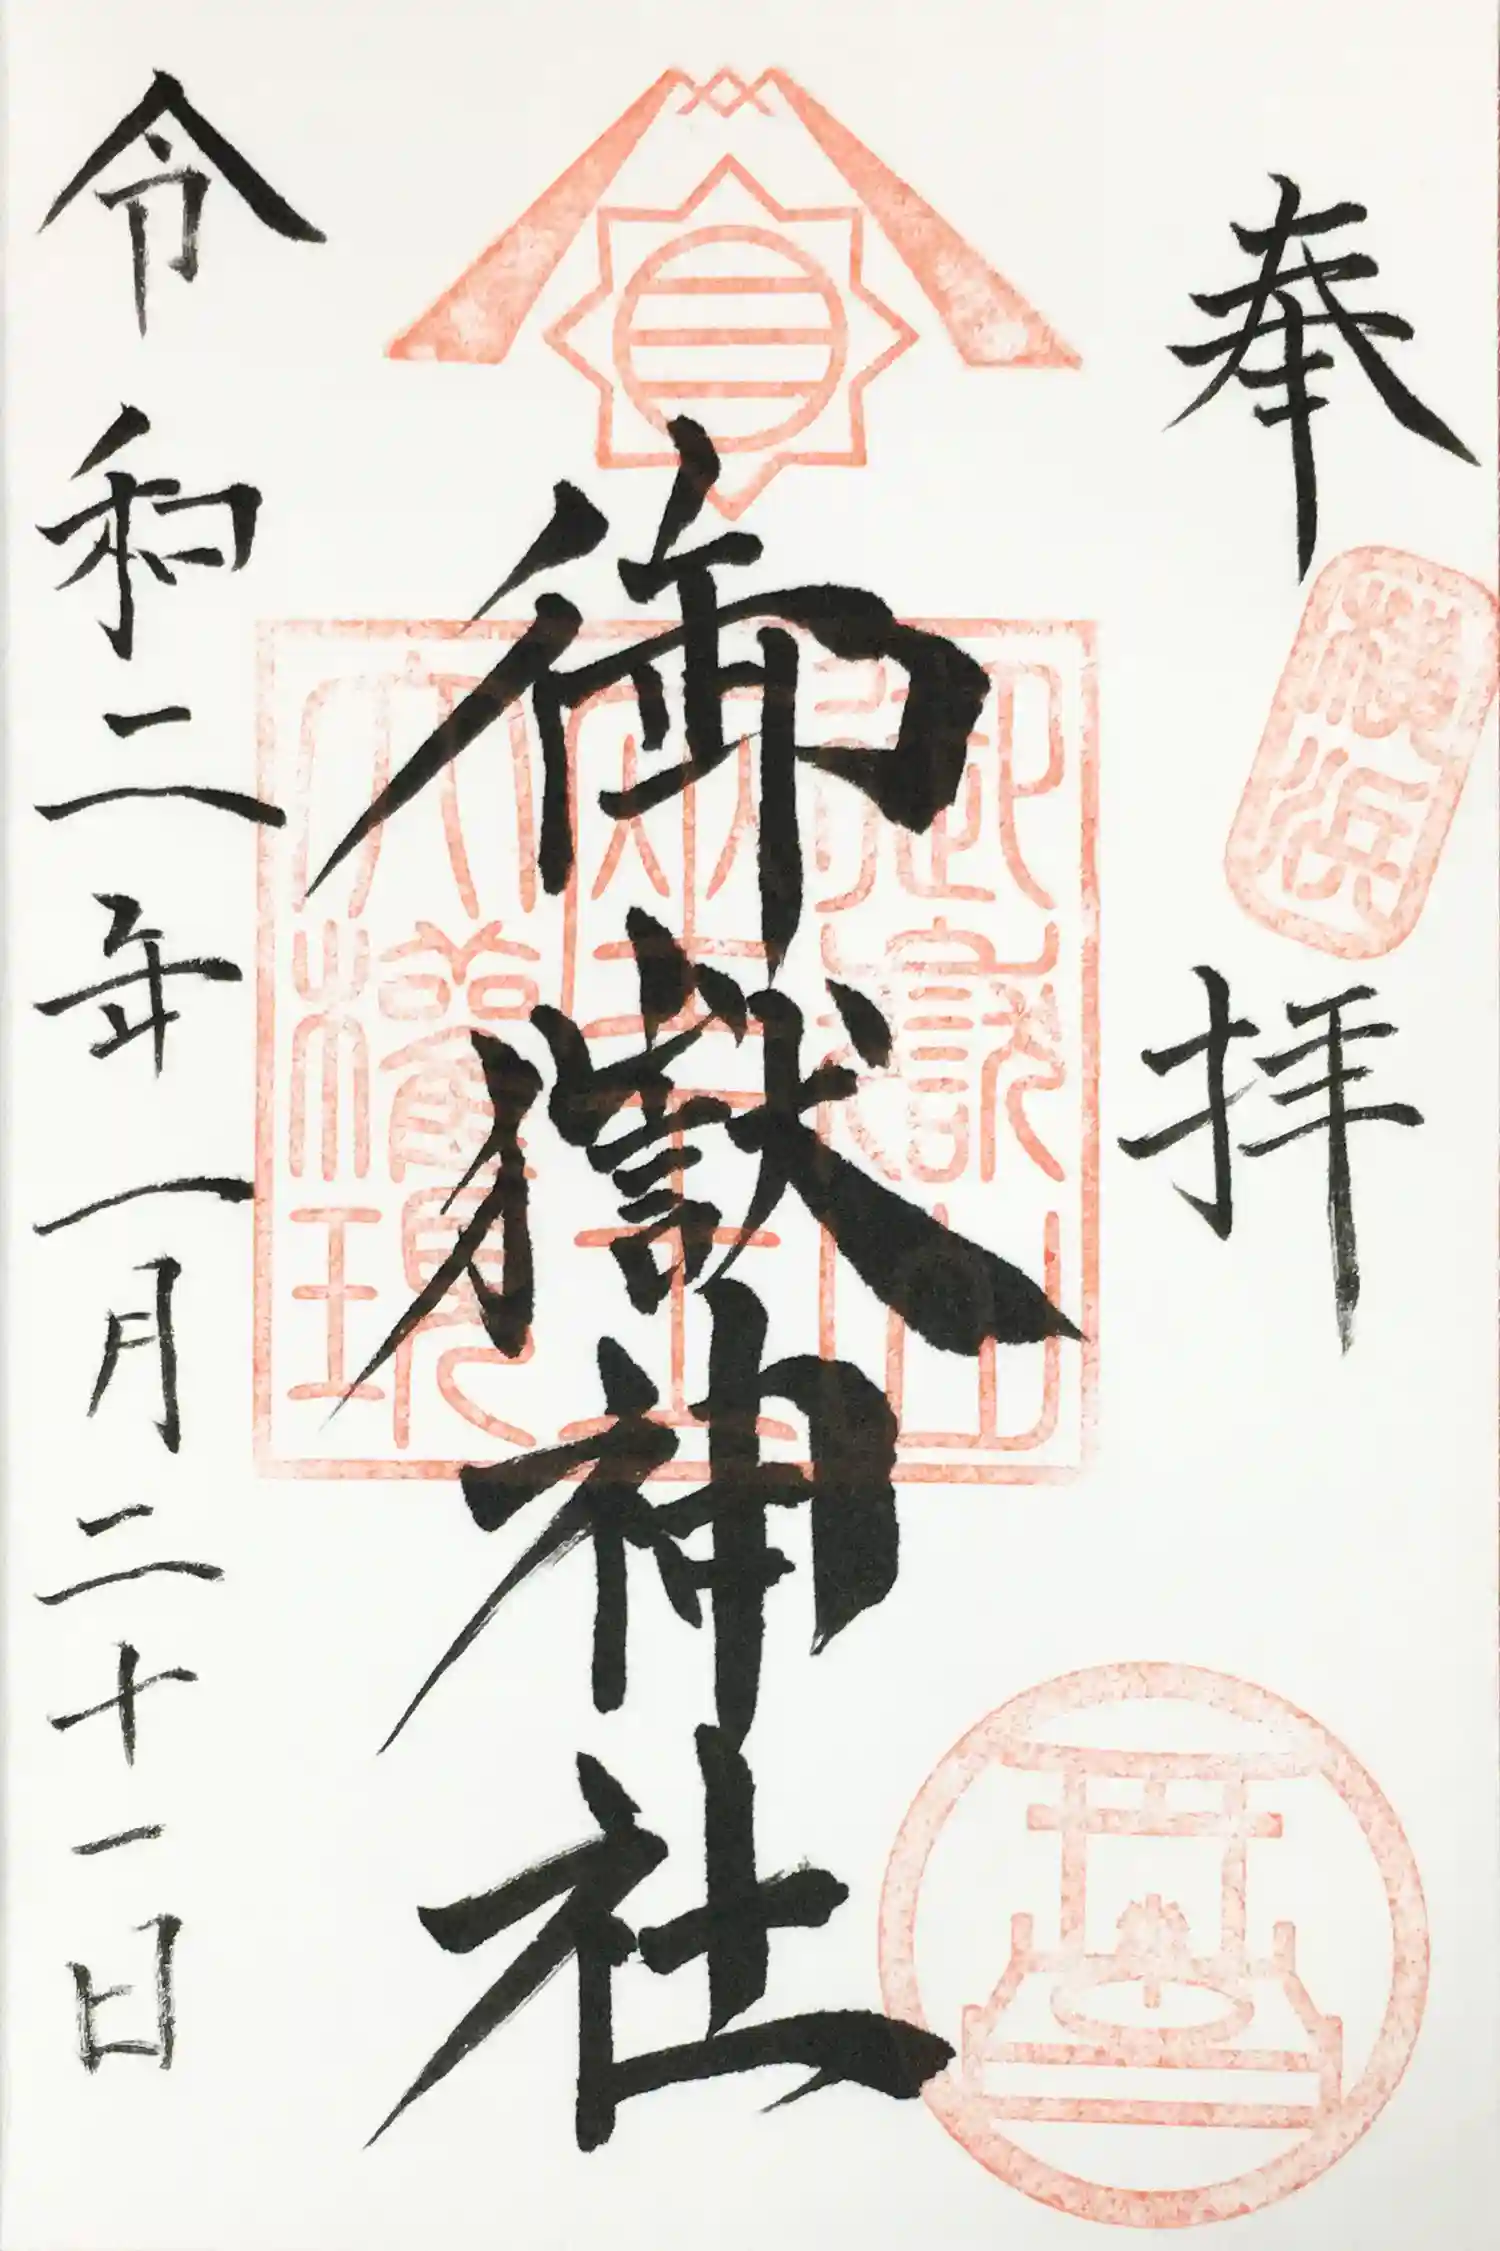 奉拝
横浜
御嶽神社
令和二年一月二十一日